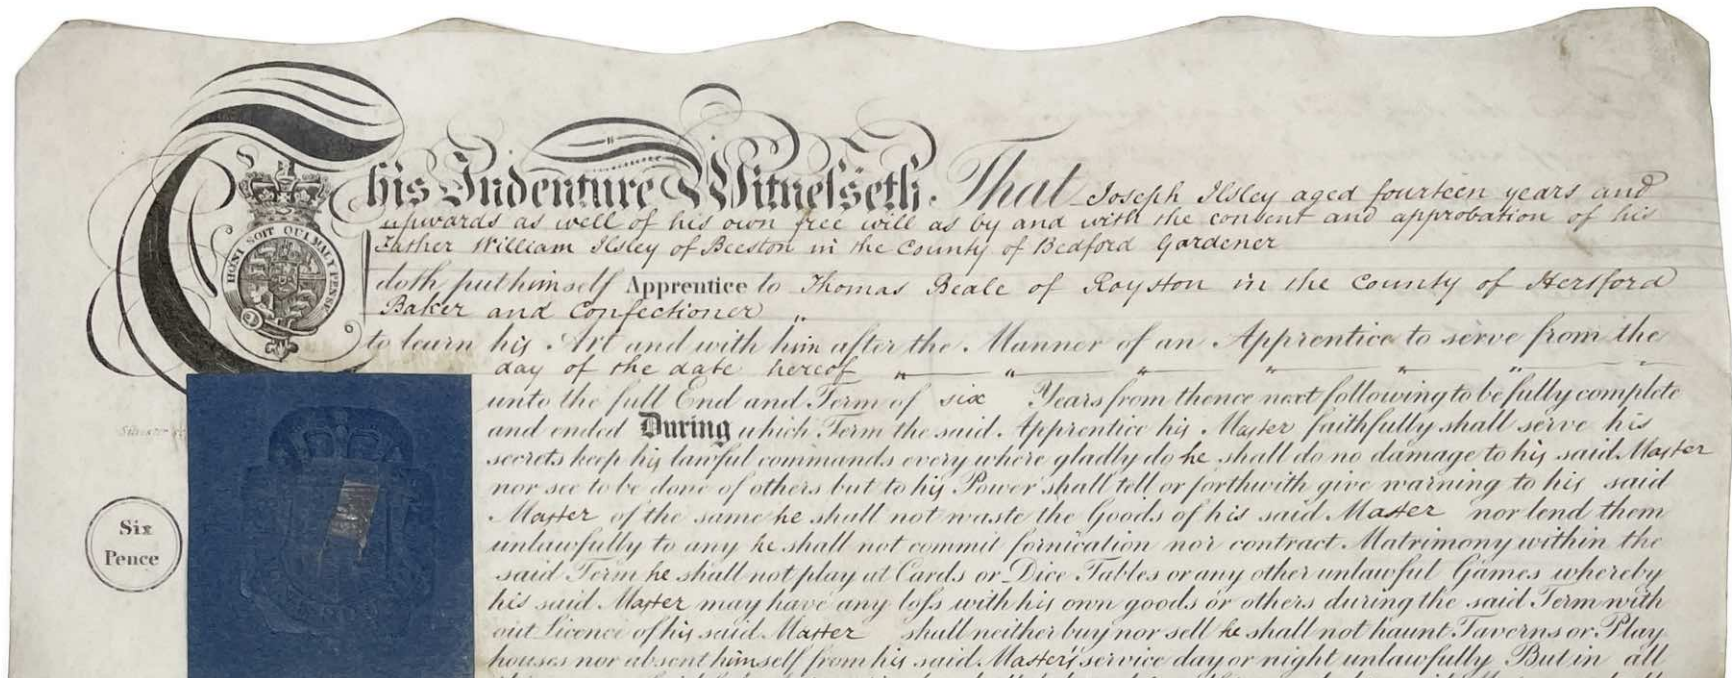 This Indenture Witnesseth. That Joseph Ilsley aged fourteen years and
upwards as well of his own free will as by and with the consent and approbation of his
Father William Ilsley of Beeston in the County of Bedford Gardener
doth put himself Apprentice to Thomas Beale of Royston in the County of Hertford
Baker and Confectioner
to learn his Art and with him after the Manner of an Apprentice to serve from the
day of the date hereof
unto the full End and Term of six Years from thence next following to be fully complete
and ended During which Term the said Apprentice his Master faithfully shall serve his
secrets keep his lawful commands every where gladly do he shall do no damage to his said Master
nor see to be done of others but to his Power shall tell or forthwith give warning to his said
Master of the same he shall not waste the Goods of his said Master nor lend them
unlawfully to any he shall not commit fornication nor contract Matrimony within the
said Term he shall not play at Cards or Dice Tables or any other unlawful Games whereby
his said Master may have any loss with his own goods or others during the said Term with
out Licence of his said Master shall neither buy nor sell he shall not haunt Taverns or Play
houses nor absent himself from his said Master's service day or night unlawfully But in all
HONI SOIT QUI MAL Y PENSE
Six
Pence